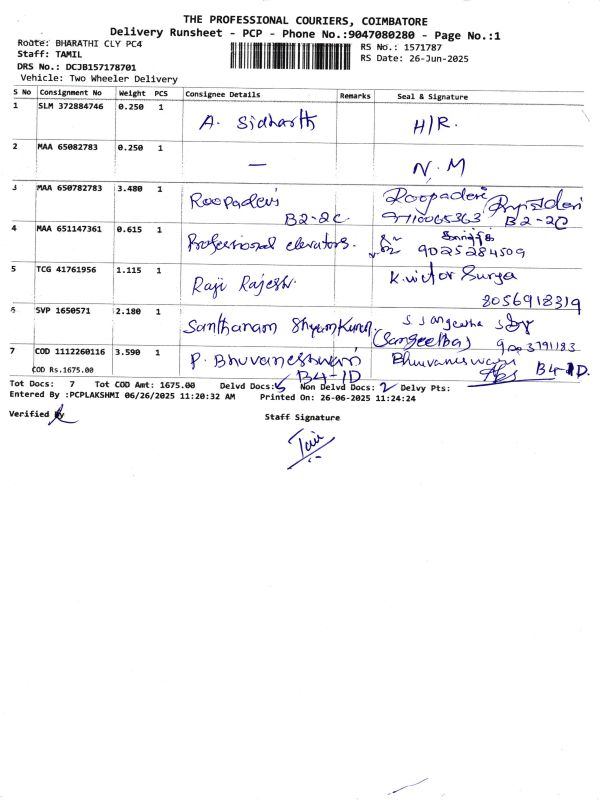 THE PROFESSIONAL COURIERS, COIMBATORE
Delivery Runsheet - PCP - Phone No.:9047080280 - Page No.:1
Route: BHARATHI CLY PC4
Staff: TAMIL
DRS No.: DCJB157178701
Vehicle: Two Wheeler Delivery
RS No.: 1571787
RS Date: 26-Jun-2025
S No Consignment No Weight PCS Consignee Details Remarks Seal & Signature
1 SLM 372884746 0.250 1 A. Sidharth H/R.
2 MAA 65082783 0.250 1 — N.M
3 MAA 650782783 3.480 1 Roopadevi Roopadevi
B2-2C 9710065363 B2-2C
4 MAA 651147361 0.615 1 Professional elevators.
9025284509
5 TCG 41761956 1.115 1 Raji Rajesh. K.victor Surya
8056918319
6 SVP 1650571 2.180 1 Santhanam Shyam Kumar. S. Sangeetha
(Sangeetha) 9003791183
7 COD 1112260116 3.590 1 P. Bhuvaneshwari Bhuvaneswari
COD Rs.1675.00 B4-1D B4-1D.
Tot Docs: 7 Tot COD Amt: 1675.00 Delvd Docs: 5 Non Delvd Docs: 2 Delvy Pts:
Entered By :PCPLAKSHMI 06/26/2025 11:20:32 AM Printed On: 26-06-2025 11:24:24
Verified By
Staff Signature